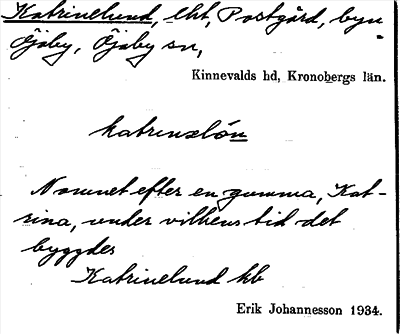 Katrinelund, lht, Postgård, byn
Öjaby, Öjaby sn,
Kinnevalds hd, Kronobergs län.
katrinəlón
Namnet efter en gumma, Kat-
rina, under vilkens tid det
byggdes
Katrinelund kb
Erik Johannesson 1934.